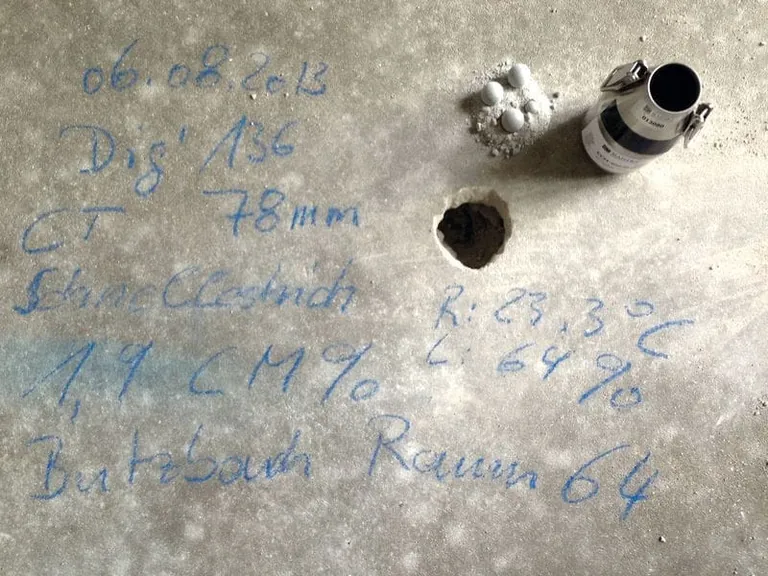 06.08.2013
Dig' 136
CT 78mm
Schnellestrich
R: 23,3°C
1,9 CM%
L: 64%
Butzbach Raum 64